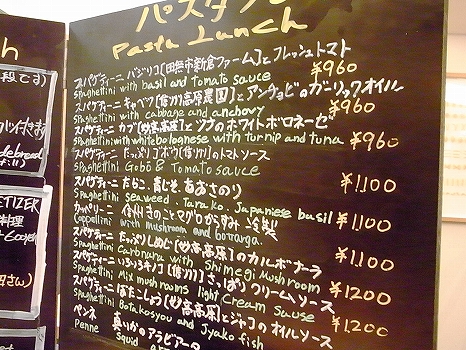 パスタラン
Pasta Lunch
スパゲティーニ バジリコ[田無市新倉ファーム]とフレッシュトマト
Spaghettini with basil and Tomato sauce ¥960
スパゲティーニ キャベツ[信州高原農園]とアンチョビのガーリックオイル
Spaghettini with cabbage and anchovy ¥960
スパゲティーニ カブ[妙高高原]とツナのホワイトボロネーゼ
Spaghettini with white bolognese with turnip and tuna ¥960
スパゲティーニ たっぷりゴボウ[信州]のトマトソース
Spaghettini Gobō & Tomato sauce ¥1.100
スパゲティーニ たらこ、青じそ、あおさのり
Spaghettini seaweed. Tarako. Japanese basil ¥1.100
カッペリーニ 信州きのことマグロからすみ 冷製
Cappellini with mushroom and botarga. ¥1.100
スパゲティーニ ぶなしめじ[妙高高原]のカルボナーラ
Spaghettini Carbonara with Shimegi Mushroom ¥1200
スパゲティーニ いろいろキノコ[信州]さっぱりクリームソース
Spaghettini Mix mushrooms light Cream Sause ¥1200
スパゲティーニ ぼたこしょう[妙高高原]とジャコのオイルソース
Spaghettini Botakosyou and Jyako fish
ペンネ 真いかのアラビアータ
Penne Squid
段です)